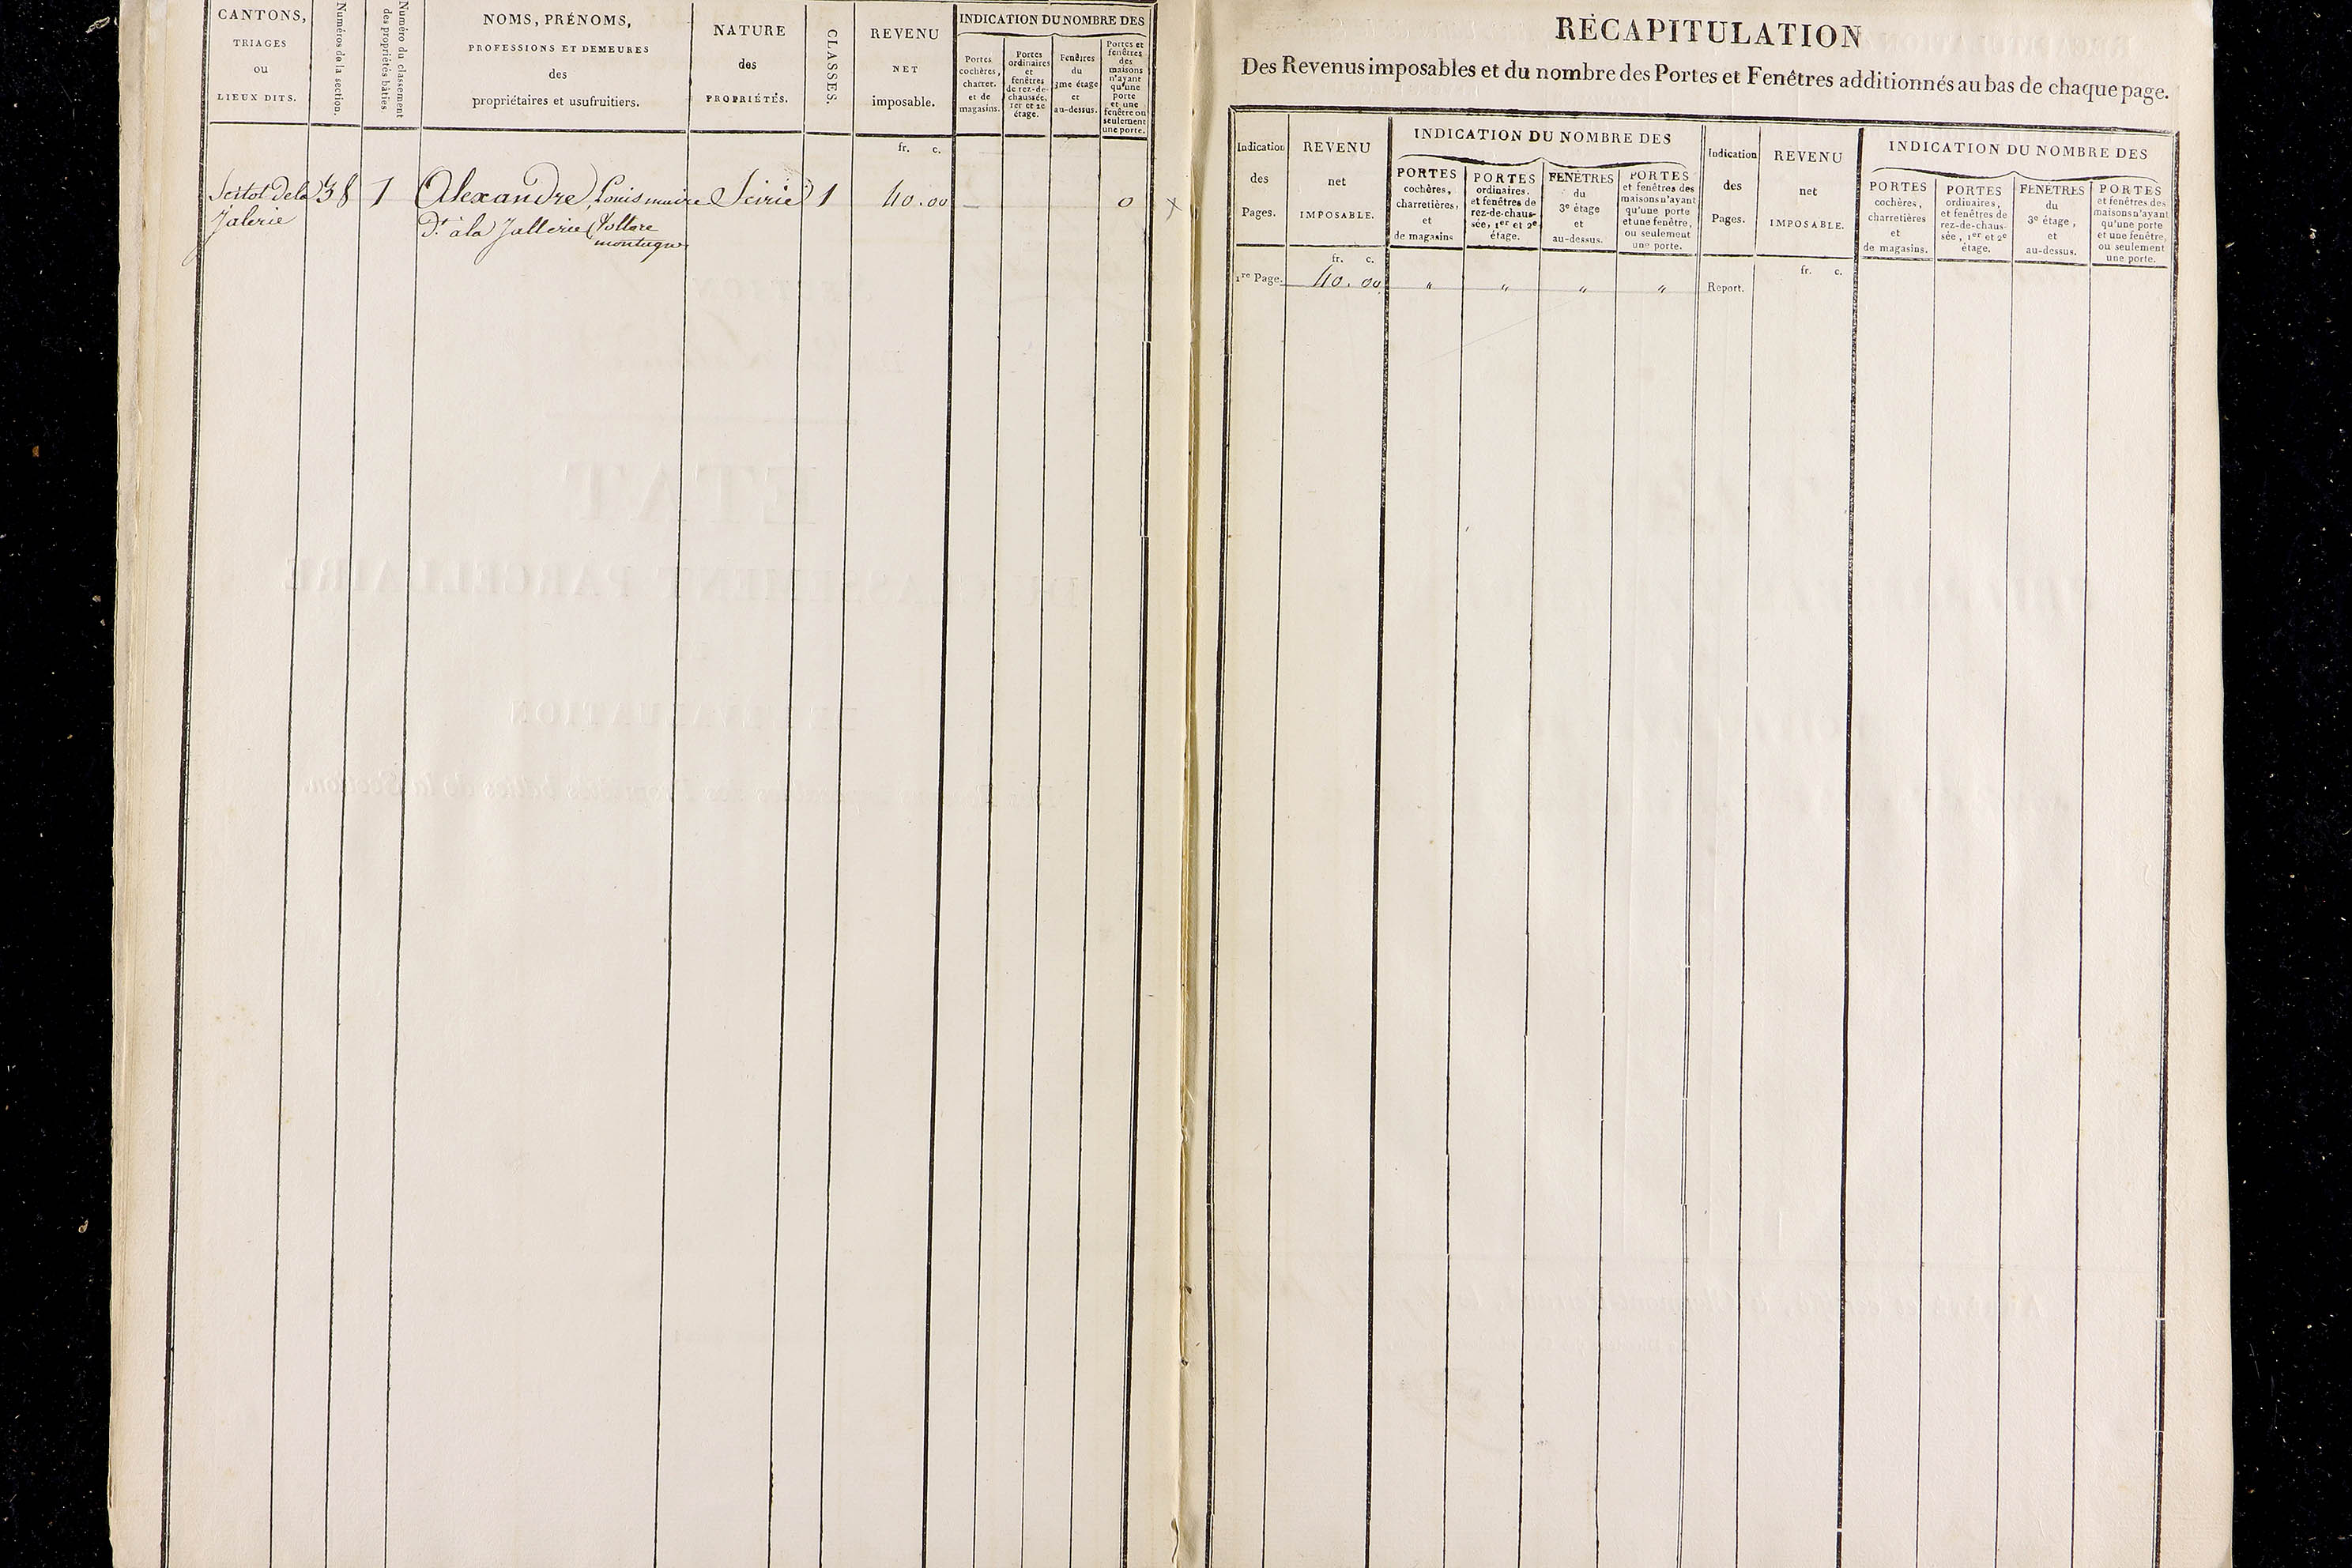 CANTONS,
TRIAGES
OU
LIEUX DITS.
Numéros de la section.
Numéro du classement
des propriétés bâties.
NOMS, PRÉNOMS,
PROFESSIONS ET DEMEURES
des
propriétaires et usufruitiers.
NATURE
des
PROPRIÉTÉS.
CLASSES.
REVENU
NET
imposable.
INDICATION DU NOMBRE DES
Portes
cochères,
charret.
et de
magasins.
Portes
ordinaires
et
fenêtres
de rez-de-
chaussée,
1er et 2e
étage.
Fenêtres
du
3me étage
et
au-dessus.
Portes et
fenêtres
des
maisons
n'ayant
qu'une
porte
et une
fenêtre ou
seulement
une porte.
fr. c.
de la 38 1 Alexandre, Louis maire Scirie 1 40.00 0
Jalerie Dt à la Jallerie
montagne
RÉCAPITULATION
Des Revenus imposables et du nombre des Portes et Fenêtres additionnés au bas de chaque page.
Indication
des
Pages.
REVENU
net
IMPOSABLE.
INDICATION DU NOMBRE DES
PORTES
cochères,
charretières,
et
de magasins
PORTES
ordinaires.
et fenêtres de
rez-de-chaus-
sée, 1er et 2e
étage.
FENÊTRES
du
3e étage
et
au-dessus.
PORTES
et fenêtres des
maisons n'ayant
qu'une porte
et une fenêtre,
ou seulement
une porte.
Indication
des
Pages.
REVENU
net
IMPOSABLE.
INDICATION DU NOMBRE DES
PORTES
cochères,
charretières
et
de magasins.
PORTES
ordinaires,
et fenêtres de
rez-de-chaus-
sée, 1er et 2e
étage.
FENÊTRES
du
3e étage,
et
au-dessus.
PORTES
et fenêtres des
maisons n'ayant
qu'une porte
et une fenêtre,
ou seulement
une porte.
fr. c.
fr. c.
1re Page. 40.00 " " " " Report.